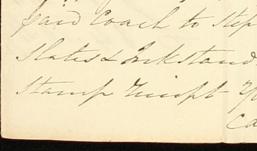 paid Coach to Step
Slates & Inkstand
Stamp Receipt
Ca